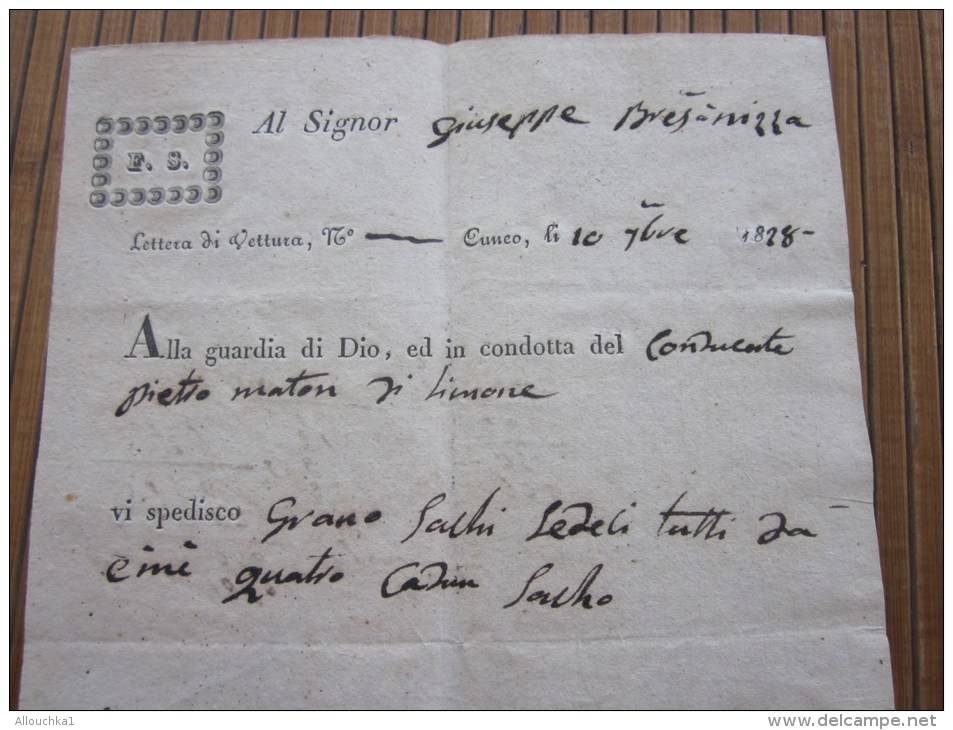 F. S.
Al Signor Giuseppe Bresanizza
Lettera di Vettura, N.º — Cuneo, li 10 7bre 1828-
Alla guardia di Dio, ed in condotta del Conducente
pietro maton di limone
vi spedisco Grano Sachi Sedeci tutti da
emi quatro Cadun Sacho
Allouchka1
www.delcampe.net